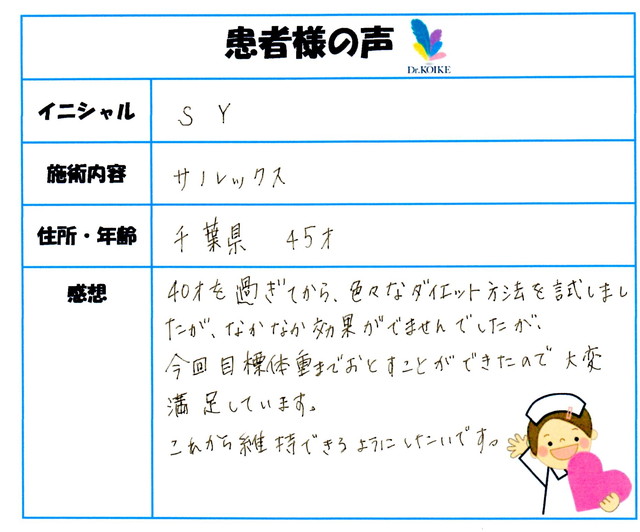 患者様の声
Dr.KOIKE
イニシャル
S Y
施術内容
サノレックス
住所・年齢
千葉県 45才
感想
40才を過ぎてから、色々なダイエット方法を試しまし
たが、なかなか効果がでませんでしたが、
今回目標体重までおとすことができたので大変
満足しています。
これから維持できるようにしたいです。